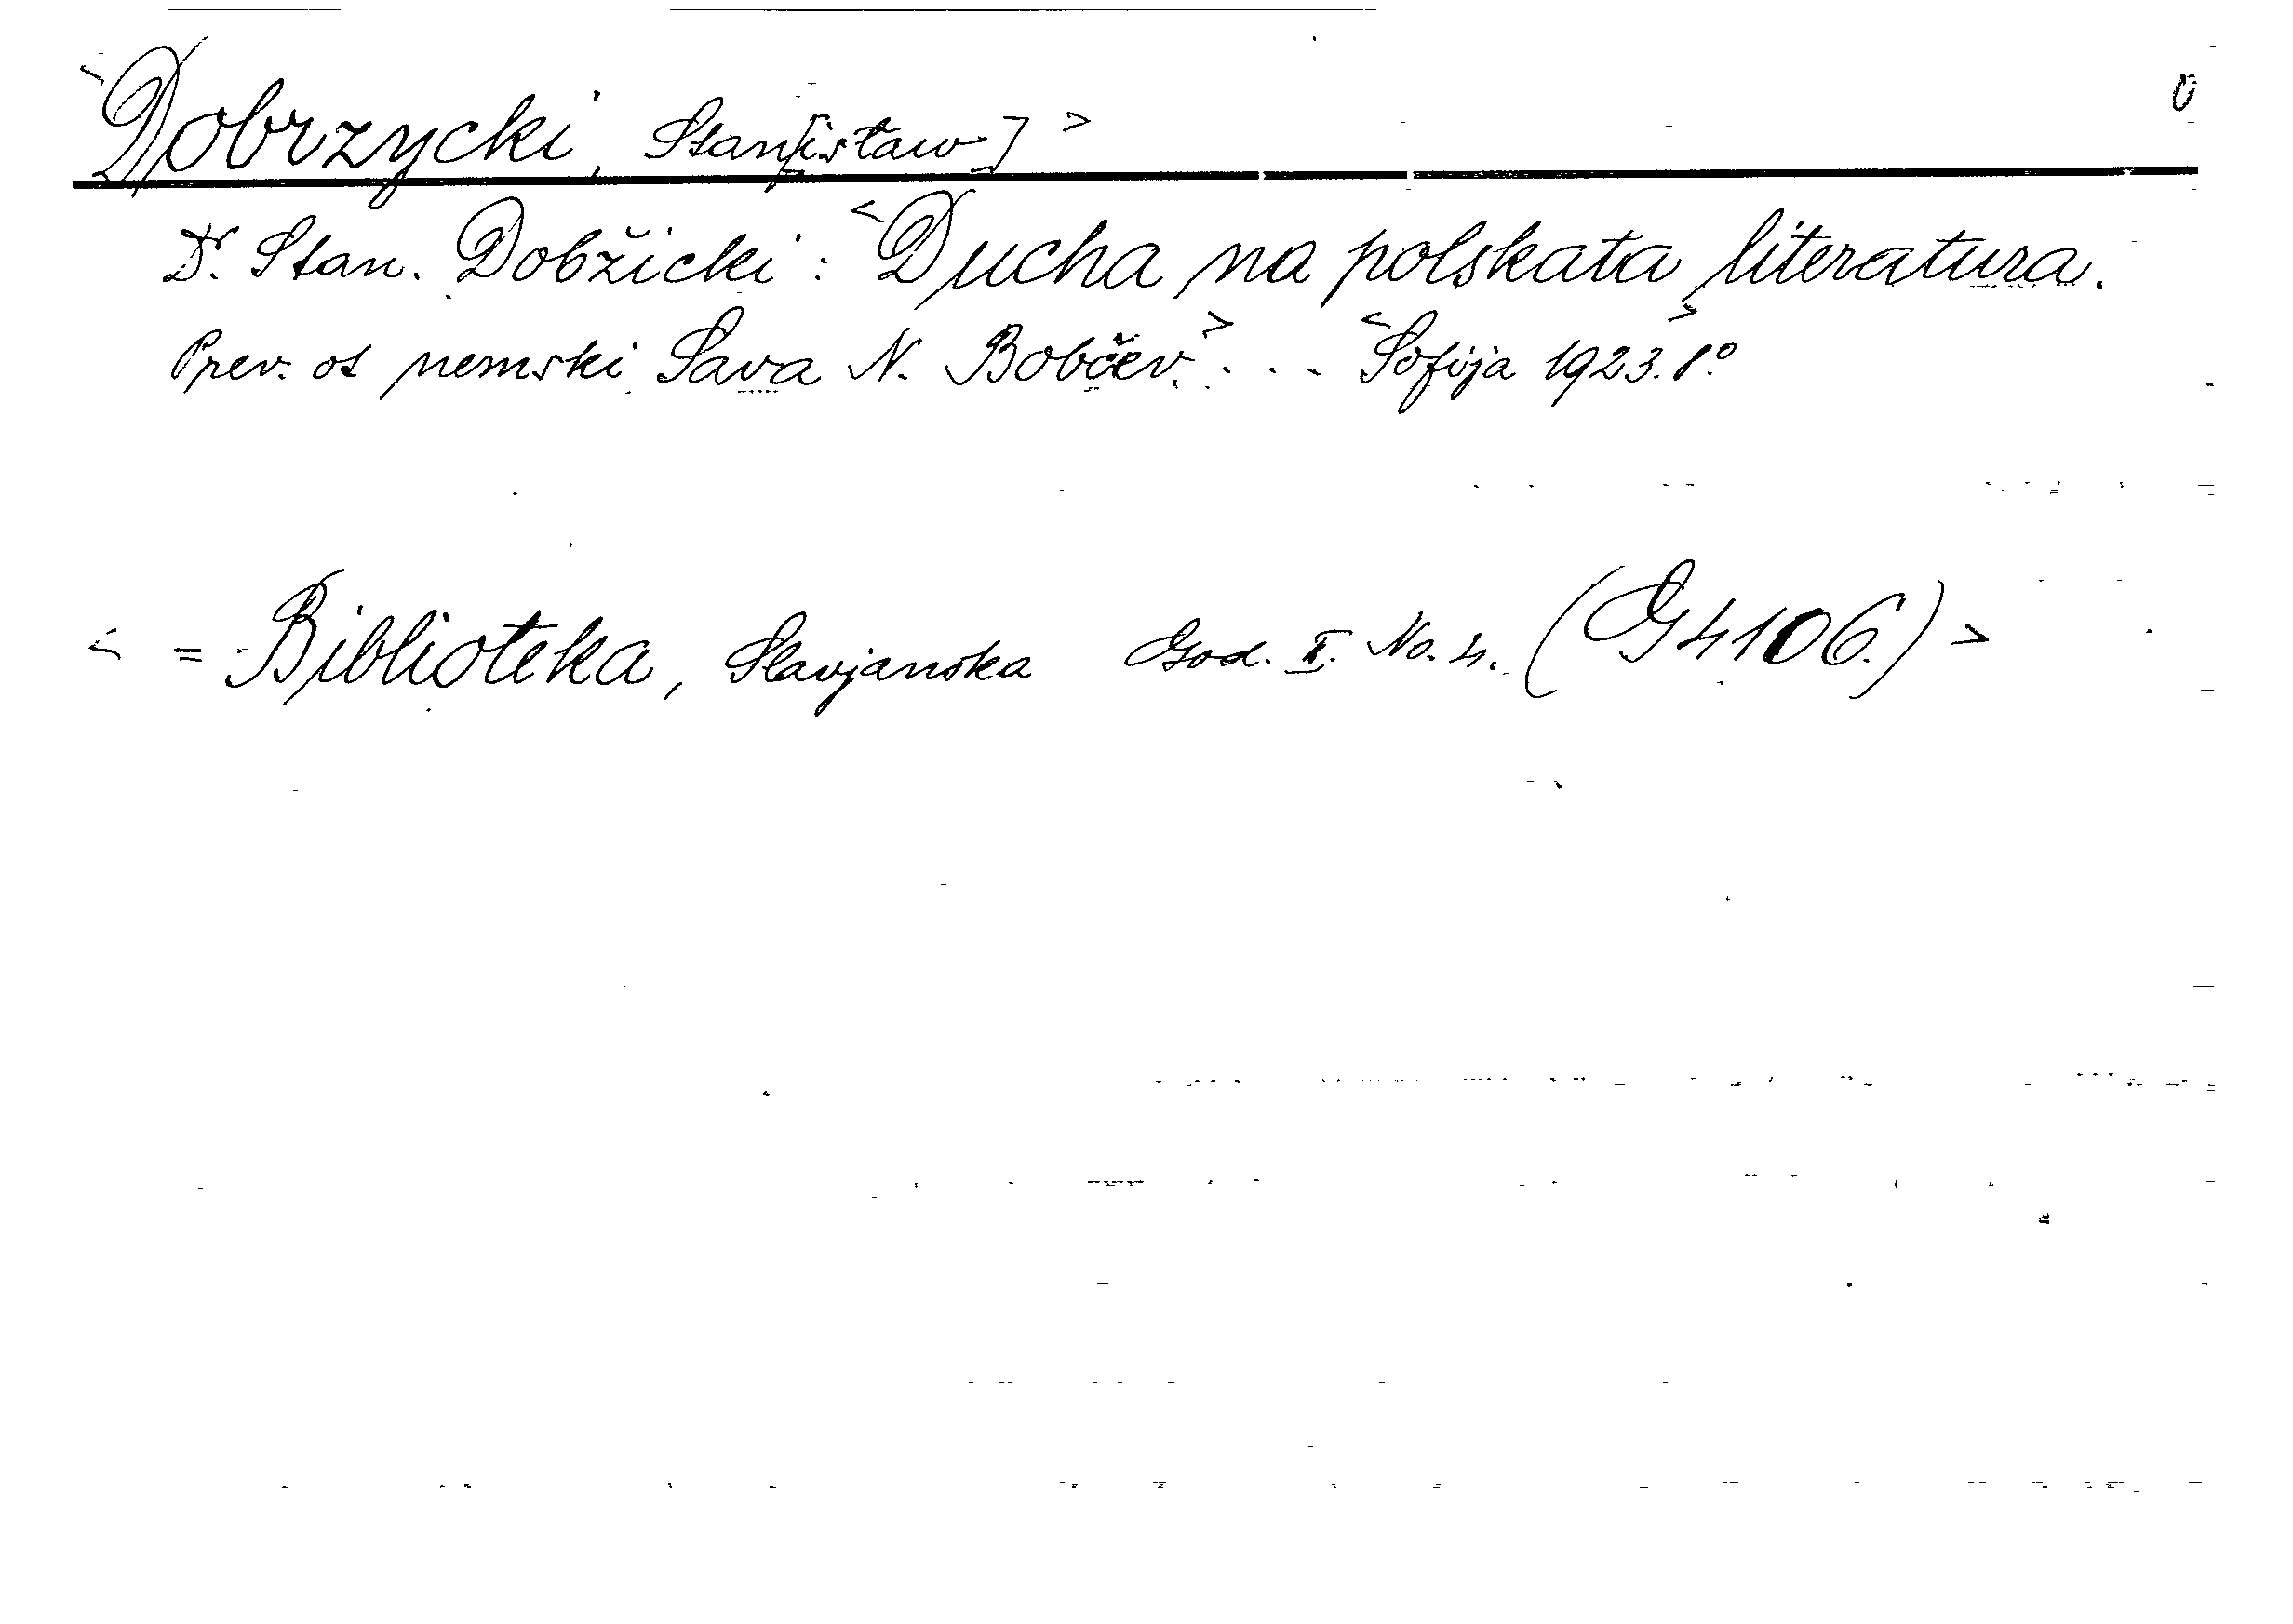 <Dobrzycki, Stan[isław]>
Dr. Stan. Dobžicki: <Ducha na polskata literatura.>
Prev. ot nemski Sava N. Bobčev.> ... <Sofija 1923. 8°
< = Biblioteka, Slavjanska God. II. No. 4. (G4106.) >